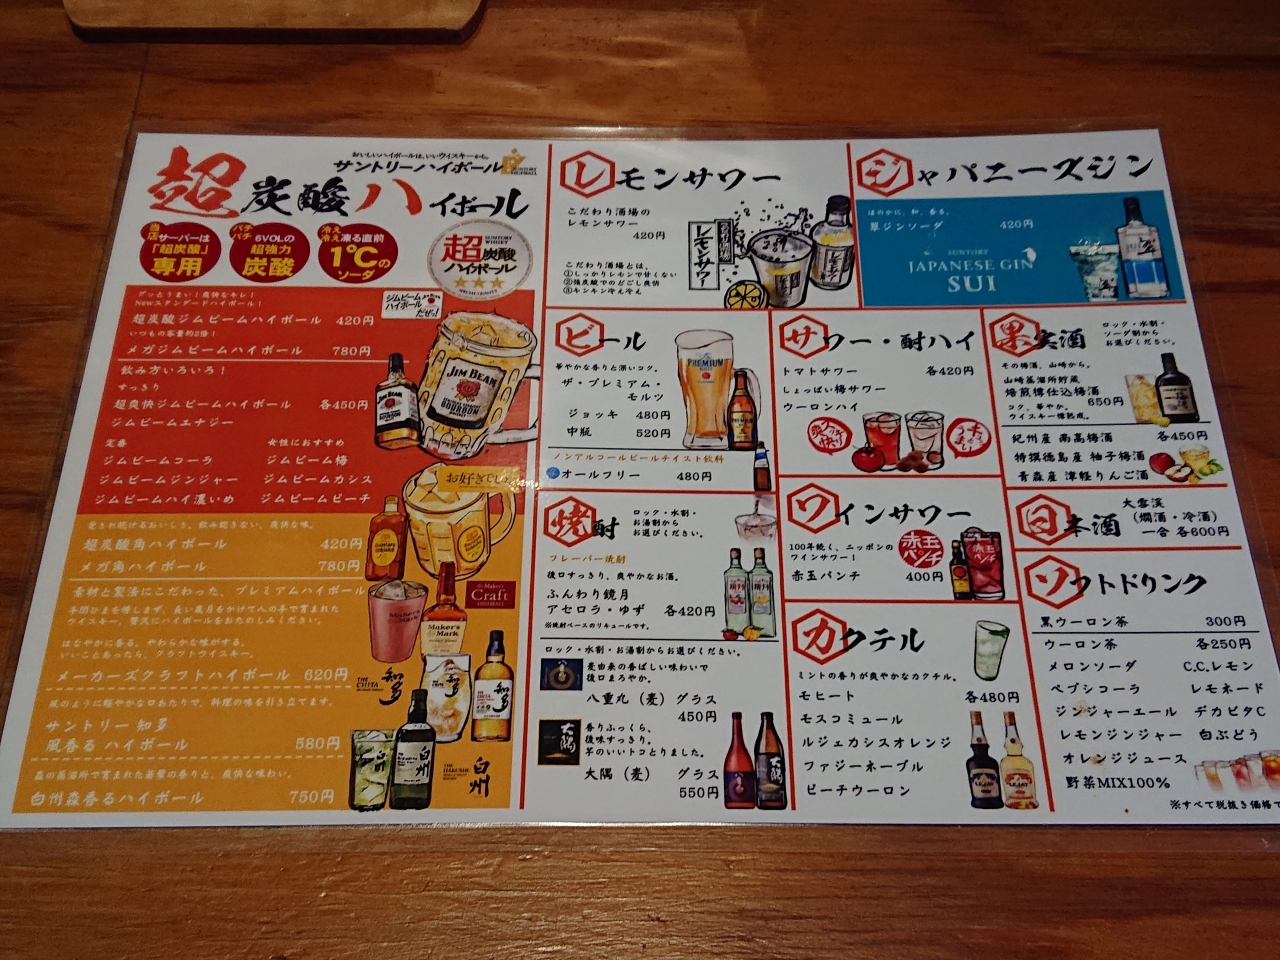 超炭酸ハイボール
おいしいハイボールは、いいウイスキーから。
サントリーハイボール
当店サーバーは
「超炭酸」
専用
パチパチ 6VOLの
超強力
炭酸
冷え冷え 凍る直前
1℃の
ソーダ
SUNTORY WHISKY
超炭酸
ハイボール
グッとうまい!爽快なキレ!
Newスタンダードハイボール!
超炭酸ジムビームハイボール 420円
いつもの容量約2倍!
メガジムビームハイボール 780円
ジムビーム
ハイボール
だぜっ!
飲み方いろいろ!
すっきり
超爽快ジムビームハイボール 各450円
ジムビームエナジー
定番 女性におすすめ
ジムビームコーラ ジムビーム梅
ジムビームジンジャー ジムビームカシス
ジムビームハイ濃いめ ジムビームピーチ
JIM BEAM
BOURBON
お好きでしょ
愛され続けるおいしさ。飲み飽きない、爽快な味。
超炭酸角ハイボール 420円
メガ角ハイボール 780円
素材と製法にこだわった、プレミアムハイボール
手間ひまを惜しまず、長い歳月をかけて人の手で育まれた
ウイスキー。贅沢にハイボールをおたのしみください。
はなやかに香る、やわらかな味がする。
いいことあったら、クラフトウイスキー。
メーカーズクラフトハイボール 620円
Maker's
Craft
HIGHBALL
Maker's
Mark
風のように軽やかな口あたりで、料理の味を引き立てます。
サントリー 知多
風香る ハイボール 580円
THE CHITA
知多
森の蒸溜所で育まれた若葉の香りと、爽快な味わい。
白州森香るハイボール 750円
THE HAKUSHU
白州
レモンサワー
こだわり酒場の
レモンサワー
420円
こだわり酒場とは、
①しっかりレモンで甘くない
②強炭酸でのどごし爽快
③キンキン冷え冷え
こだわり酒場の
レモンサワー
ジャパニーズジン
ほのかに、和、香る。
翠ジンソーダ 420円
SUNTORY
JAPANESE GIN
SUI
ビール
華やかな香りと深いコク。
ザ・プレミアム・
モルツ
ジョッキ 480円
中瓶 520円
PREMIUM
ノンアルコールビールテイスト飲料
オールフリー 480円
サワー・酎ハイ
トマトサワー 各420円
しょっぱい梅サワー
ウーロンハイ
果実酒
ロック・水割・
ソーダ割から
お選びください。
その梅酒、山崎から。
山崎蒸溜所貯蔵
焙煎樽仕込梅酒
650円
コク、華やか。
ウイスキー樽熟成。
紀州産 南高梅酒 各450円
特撰徳島産 柚子梅酒
青森産 津軽りんご酒
焼酎
ロック・水割・
お湯割から
お選びください。
フレーバー焼酎
後口すっきり、爽やかなお酒。
ふんわり鏡月
アセロラ・ゆず 各420円
※焼酎ベースのリキュールです。
ロック・水割・お湯割からお選びください。
麦由来の香ばしい味わいで
後口まろやか。
八重丸(麦) グラス
450円
大隅
香りふっくら、
後味すっきり。
芋のいいトコとりました。
大隅(麦) グラス
550円
ワインサワー
100年続く、ニッポンの
ワインサワー!
赤玉パンチ 400円
赤玉
パンチ
日本酒
大雪渓
(燗酒・冷酒)
一合 各600円
カクテル
ミントの香りが爽やかなカクテル。
モヒート 各480円
モスコミュール
ルジェカシスオレンジ
ファジーネーブル
ピーチウーロン
ソフトドリンク
黒ウーロン茶 300円
ウーロン茶 各250円
メロンソーダ C.C.レモン
ペプシコーラ レモネード
ジンジャーエール デカビタC
レモンジンジャー 白ぶどう
オレンジジュース
野菜MIX100%
※すべて税抜き価格で